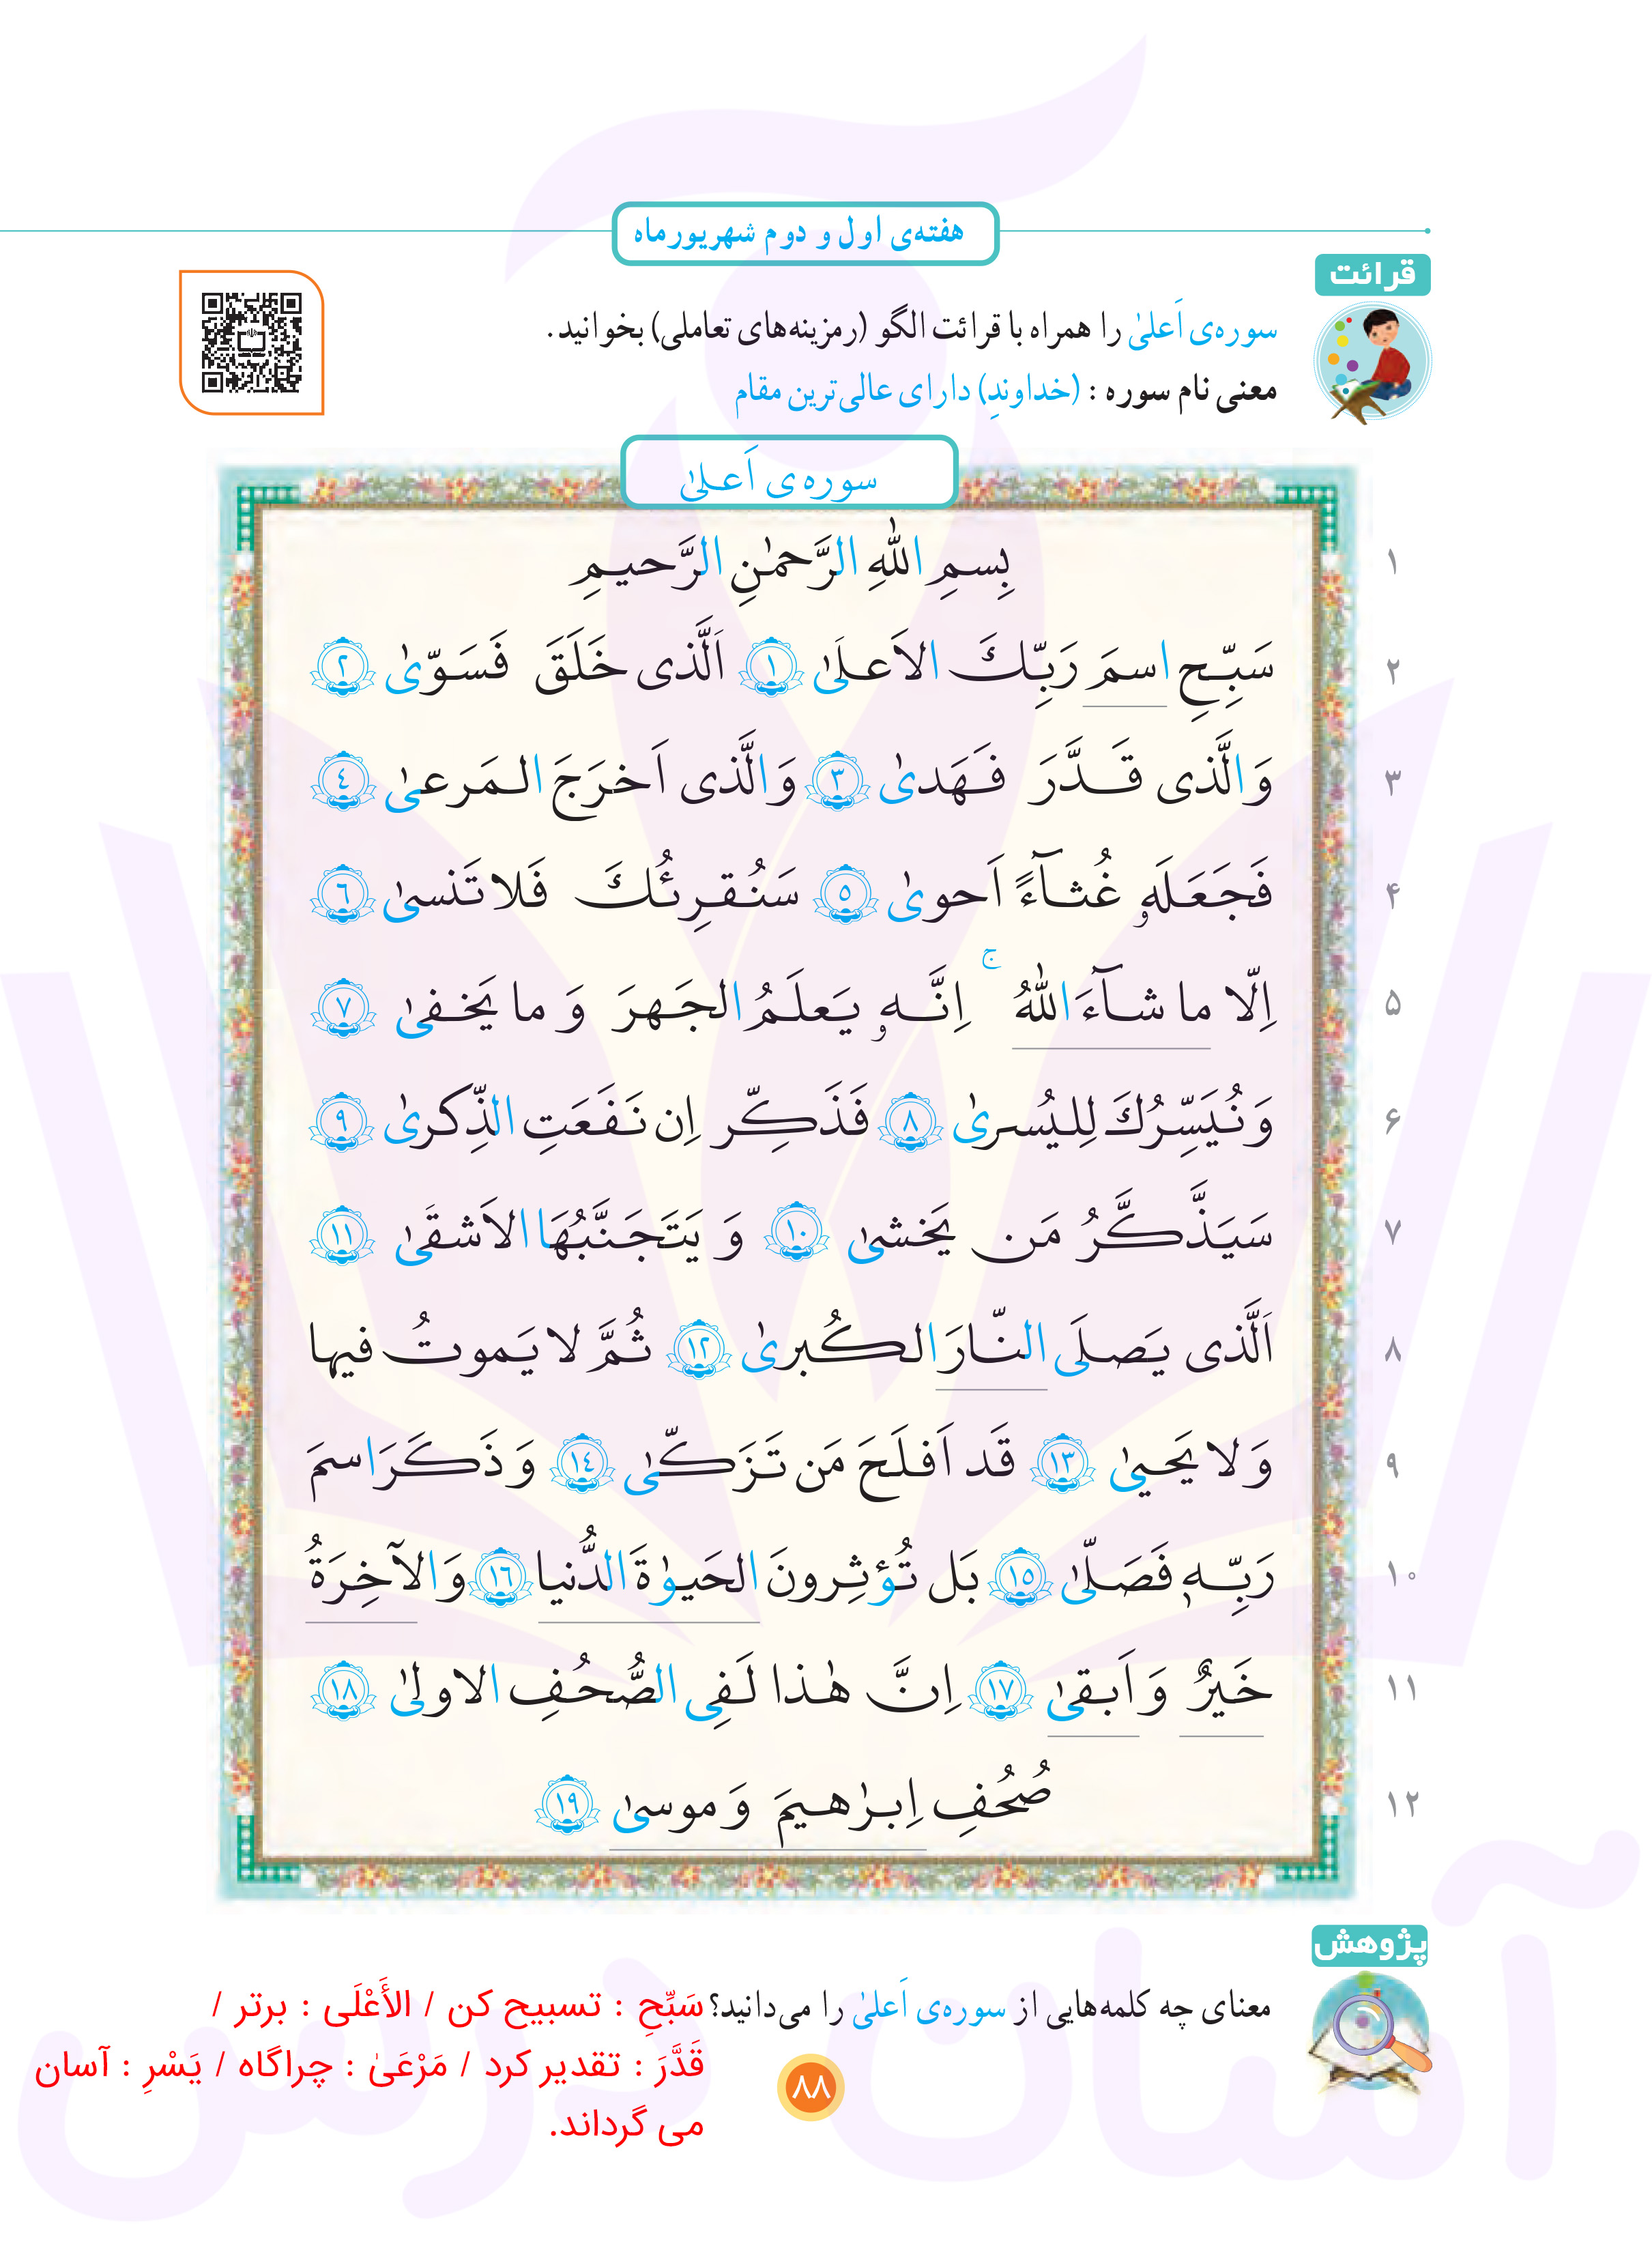 هفته‌ی اول و دوم شهریورماه
قرائت
سوره‌ی اَعلیٰ را همراه با قرائت الگو (رمزینه‌های تعاملی) بخوانید.
معنی نام سوره : (خداوندِ) دارای عالی‌ترین مقام
سوره‌ی اَعلیٰ
۱ بِسمِ اللّٰهِ الرَّحمٰنِ الرَّحیمِ
۲ سَبِّحِ اسمَ رَبِّكَ الاَعلَی ١ اَلَّذی خَلَقَ فَسَوّیٰ ٢
۳ وَ الَّذی قَدَّرَ فَهَدیٰ ٣ وَ الَّذی اَخرَجَ المَرعیٰ ٤
۴ فَجَعَلَهٗ غُثآءً اَحویٰ ٥ سَنُقرِئُكَ فَلا تَنسیٰ ٦
۵ اِلّا ما شآءَ اللّٰهُ ۚ اِنَّهٗ یَعلَمُ الجَهرَ وَ ما یَخفیٰ ٧
۶ وَ نُیَسِّرُكَ لِلیُسریٰ ٨ فَذَكِّر اِن نَفَعَتِ الذِّكریٰ ٩
۷ سَیَذَّكَّرُ مَن یَخشیٰ ١٠ وَ یَتَجَنَّبُهَا الاَشقَی ١١
۸ اَلَّذی یَصلَی النّارَ الكُبریٰ ١٢ ثُمَّ لا یَموتُ فیها
۹ وَ لا یَحییٰ ١٣ قَد اَفلَحَ مَن تَزَكّیٰ ١٤ وَ ذَكَرَ اسمَ
۱۰ رَبِّهٖ فَصَلّیٰ ١٥ بَل تُؤثِرونَ الحَیوٰةَ الدُّنیا ١٦ وَ الآخِرَةُ
۱۱ خَیرٌ وَ اَبقیٰ ١٧ اِنَّ هٰذا لَفِی الصُّحُفِ الاولیٰ ١٨
۱۲ صُحُفِ اِبرٰهیمَ وَ موسیٰ ١٩
پژوهش
معنای چه کلمه‌هایی از سوره‌ی اَعلیٰ را می‌دانید؟ سَبِّحِ : تسبیح کن / الأَعْلَی : برتر /
قَدَّرَ : تقدیر کرد / مَرْعَیٰ : چراگاه / یَسْرِ : آسان
می گرداند.
۸۸
آسان درس